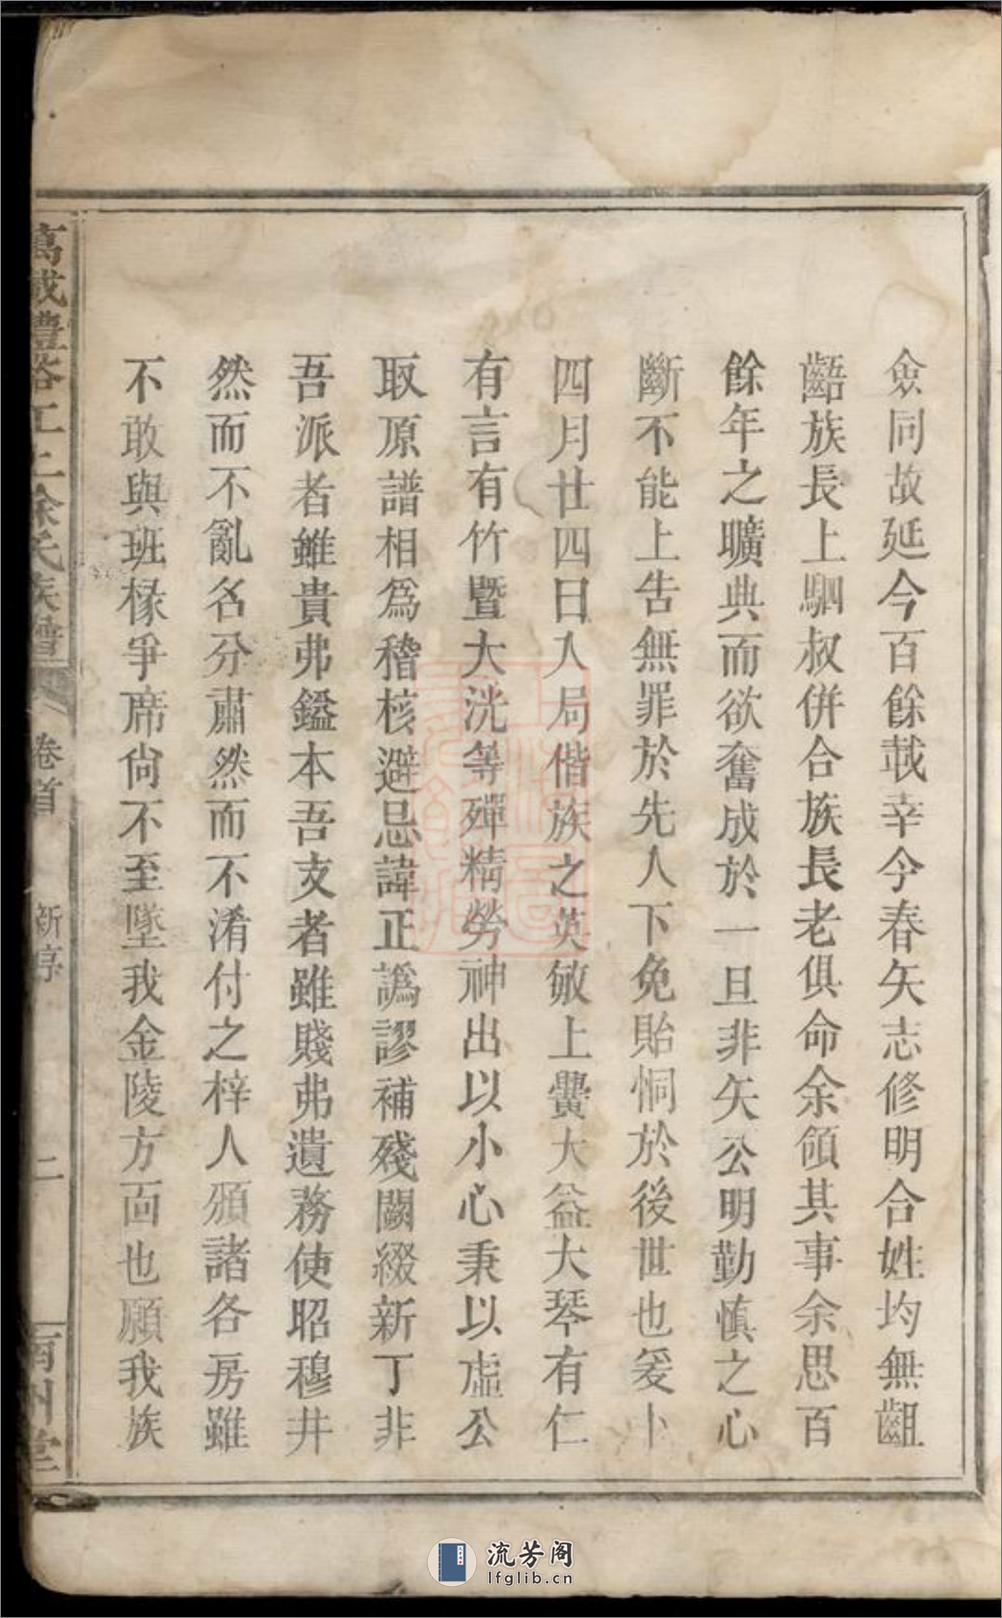 僉同故延今百餘載幸今春矢志修明合姓均無齟
齬族長上駟叔併合族長老俱命余領其事余思百
餘年之曠典而欲奮成於一旦非矢公明勤慎之心
斷不能上告無罪於先人下免貽恫於後世也爰卜
四月廿四日入局偕族之英敏上爨大益大琴有仁
有言有竹暨大洸等殫精勞神出以小心秉以虛公
取原譜相為稽核避忌諱正譌謬補殘闕綴新丁非
吾派者雖貴弗鎰本吾支者雖賤弗遺務使昭穆井
然而不亂名分肅然而不淆付之梓人頒諸各房雖
不敢與班椽爭席尙不至墜我金陵方靣也願我族
萬成豐谷工上徐氏族譜
卷首
新序
二
南州堂
流芳阁
lfglib.cn